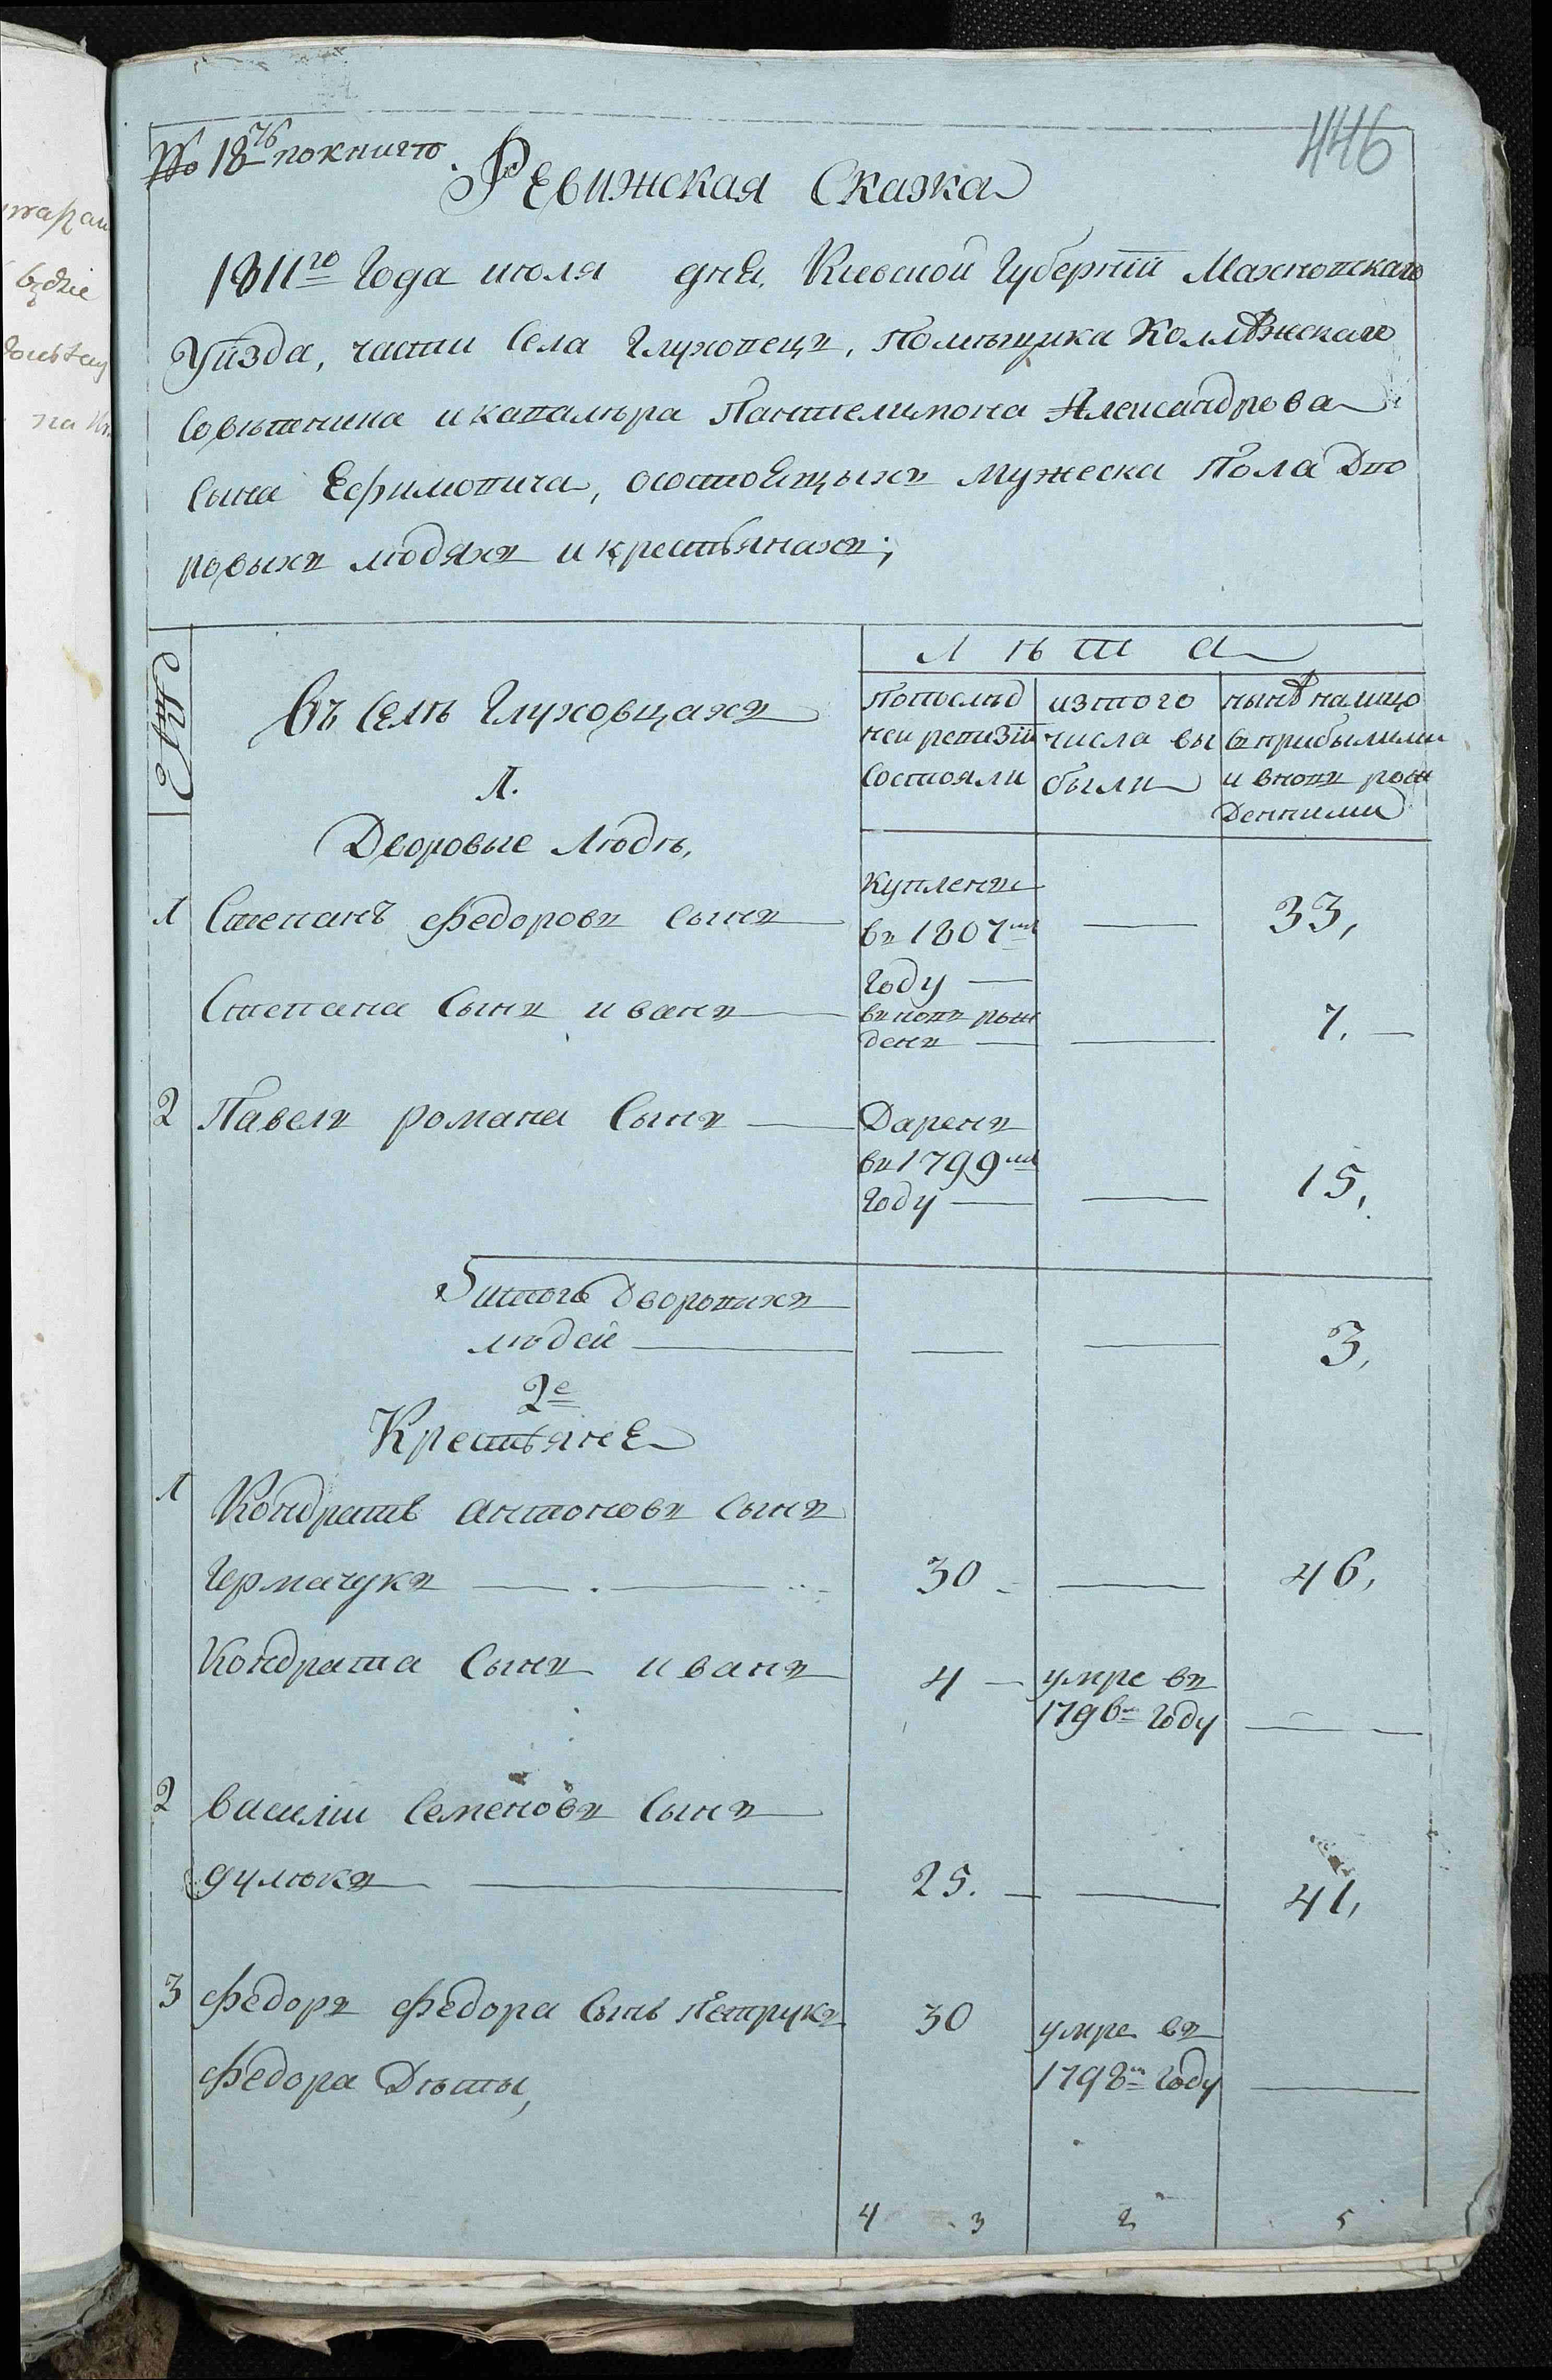 446
No 18 76 по книге
Ревижская Сказка
1811го Года июля дня, Киевской Губернїи Махновскаго
Уизда, части Села Глуховець, Помѣщика Коллѣжскаго
Совѣтника и кавалѣра Пантелимона Александрова
Сына Ефимовича, осостоящыхъ мужеска Пола Дво
ровыхъ людяхъ и крестьянахъ;
Лѣта
въ Селѣ Глуховцахъ
По послѣд
ней ревизїи
Состояли
изтого
числа вы
были
нынѣ налицо
съ прибылыми
и вновъ рож
денними
1.
Дворовые Людѣ,
1 Степанъ Федоровъ Сынъ
Купленъ
въ 1807м
Году
33,
Степана Сынъ иванъ
вновъ рож
денъ
7.
2 Павелъ романа Сынъ
Даренъ
въ 1799м
Году
15,
итого Дворовихъ
людей
3,
2е
Крестьяне
1 Кондратъ антоновъ Сынъ
Гермачукъ 30 46,
Кондрата Сынъ иванъ 4
умре въ
1796м Году
2 василїи Семеновъ Сынъ
дулюкъ 25. 41,
3 Федоръ Федора Сынъ Петрукъ 30
умре въ
1798м Году
Федора Дѣты,
4 3 2 5